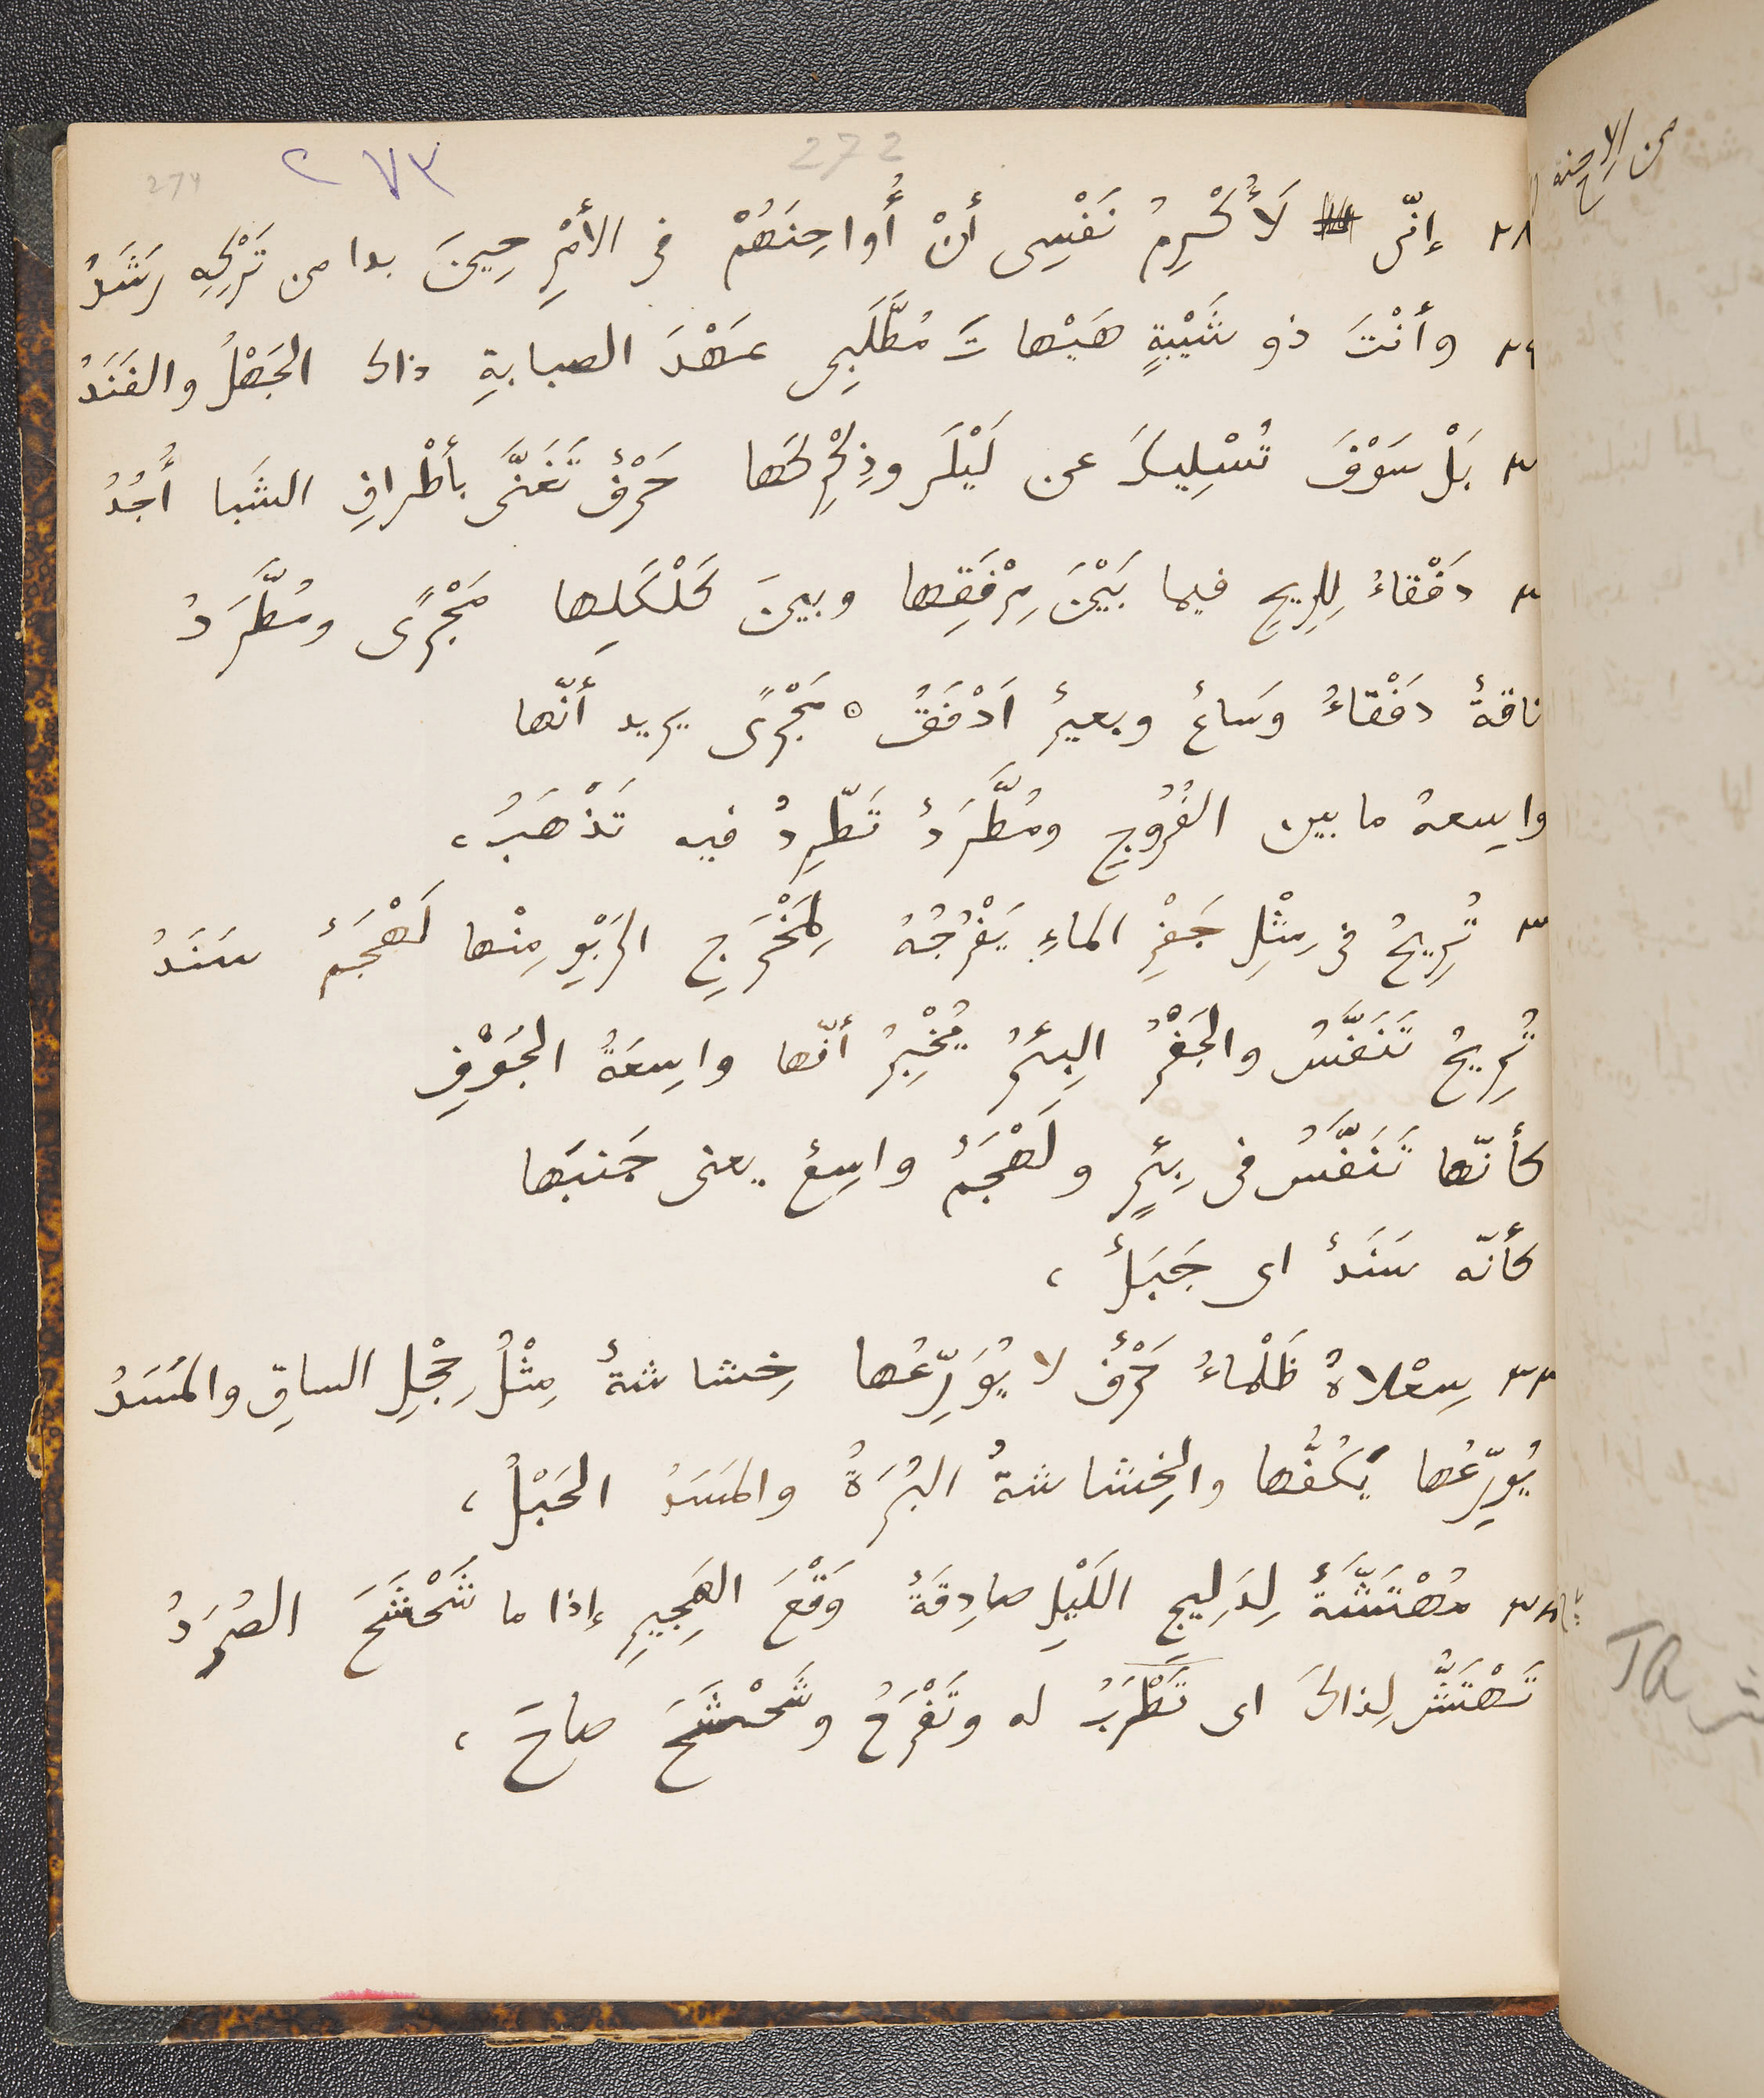 272
٢٧٣
274
من الاحنة
٢٨ إنّى لَأُكْرِمُ نَفْسِى أنْ أُواحِنَهُمْ فى الأمْرِ حِينَ بدا من تَرْكِهِ رَشَدُ
٢٩ وأنْتَ ذو شَيْبةٍ هَيْهاتَ مُطَّلَبِى عَهْدَ الصبابةِ ذاك الجَهْلُ والفَنَدُ
٣ بَلْ سَوْفَ تُسْلِيكَ عن لَيْلَى وذِكْرِكَها حَرْفٌ تَغَنَّى بأطْرافِ الشَبا أُجُدُ
٣ دَفْقاءُ لِلرِيحِ فيما بَيْنَ مِرْفَقِها وبينَ كَلْكَلِها مَجْرًى ومُطَّرَدُ
ناقةٌ دَفْقاءُ وَساعٌ وبعيرٌ اَدْفَقُ ٥ مَجْرًى يريد أنّها
واسِعةُ ما بين الفُرُوجِ ومُطَّرَدٌ تَطَّرِدُ فيه تَذْهَبُ ،
٣ تُرِيحُ فى مِثْلِ جَفْرِ الماءِ يَفْرُجُهُ لِمَخْرَجِ الرَبْوِ مِنْها لَهْجَمٌ سَنَدُ
تُرِيحُ تَنَفَّسُ والجَفْرُ البِئرُ يُخْبِرُ أنّها واسِعَةُ الجَوْفِ
كأنّها تَنَفَّسُ فى بِئرٍ ولَهْجَمٌ واسِعٌ يعنى جَنبَها
كأنّه سَنَدٌ اى جَبَلٌ ،
٣٣ سِعْلاةُ ظَلْماءُ حَرْفٌ لا يُوَرِّعُها خِشاشةٌ مِثْلُ حِجْلِ الساقِ والمَسَدُ
يُوَرِّعُها يَكُفُّها والخِشاشةُ البُرَةُ والمَسَدُ الحَبْلُ ،
مُهْتَشَّةٌ لِدَلِيجِ اللَيْلِ صادِقَةٌ وَقْعَ الهَجِيرِ إذا ما شَحْشَحَ الصُرَدُ
تَهْتَشُّ لِذالكَ اى تَطْرَبُ له وتَفْرَحُ وشَحْشَحَ صاحَ ،